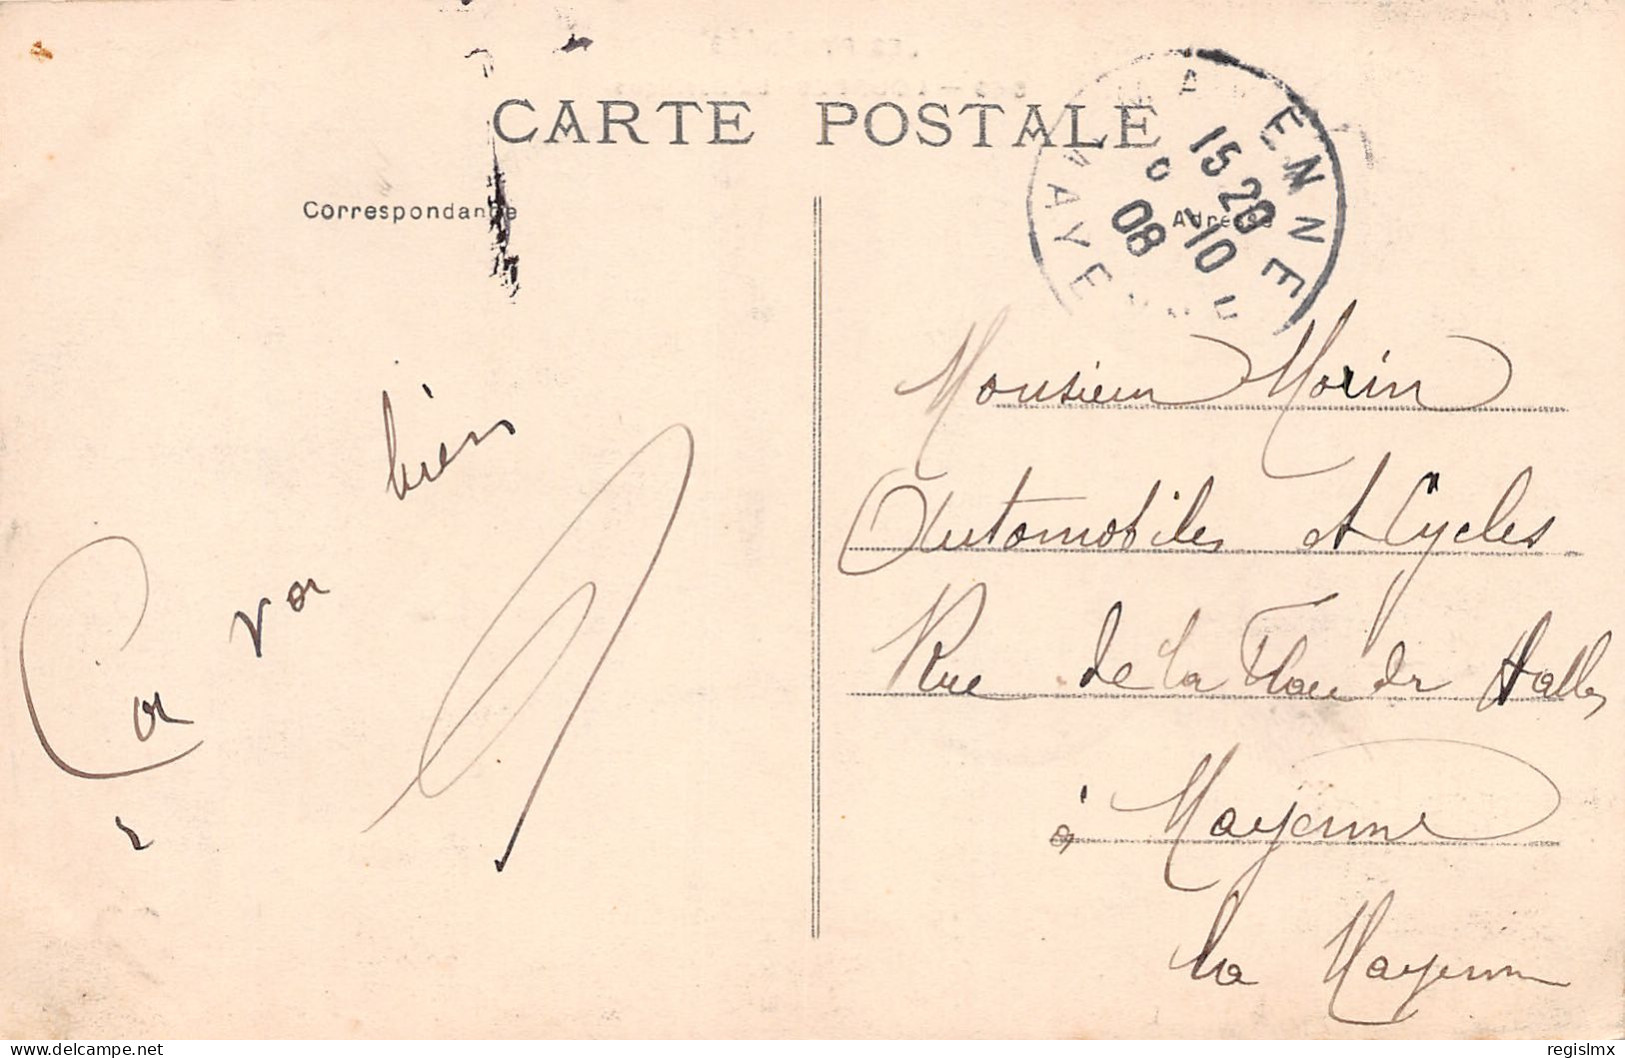 CARTE POSTALE
Correspondance
Adresse
MAYENNE
15 20
10
08
MAYENNE
Ça va bien
Monsieur Morin
Automobiles et Cycles
Rue de la des Halles
à Mayenne
La Mayenne
delcampe.net
regislmx